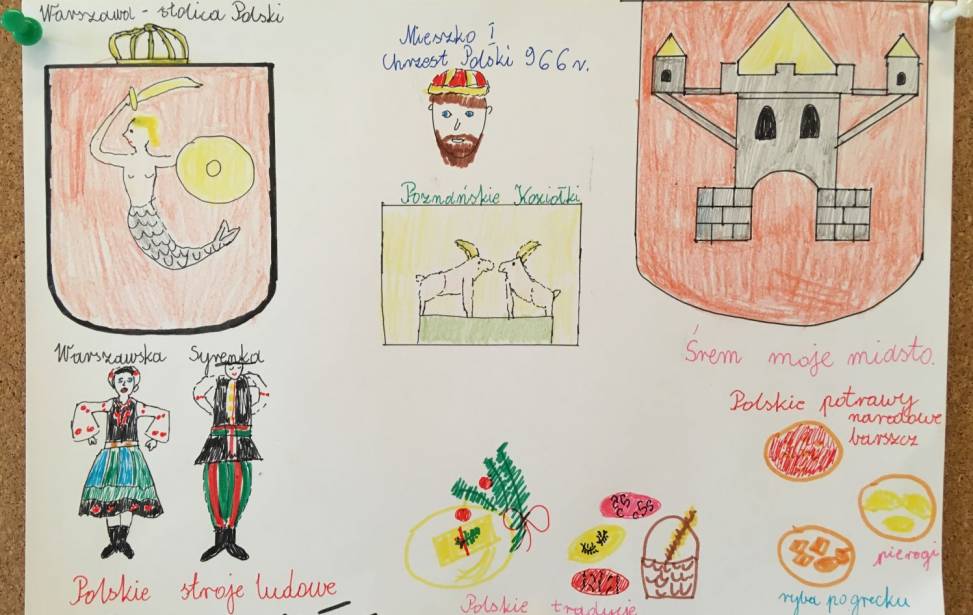 Warszawa - stolica Polski
Mieszko I
Chrzest Polski 966 r.
Poznańskie Koziołki
Warszawska Syrenka
Śrem moje miasto.
Polskie potrawy
narodowe
barszcz
pierogi
ryba po grecku
Polskie stroje ludowe
Polskie tradycje